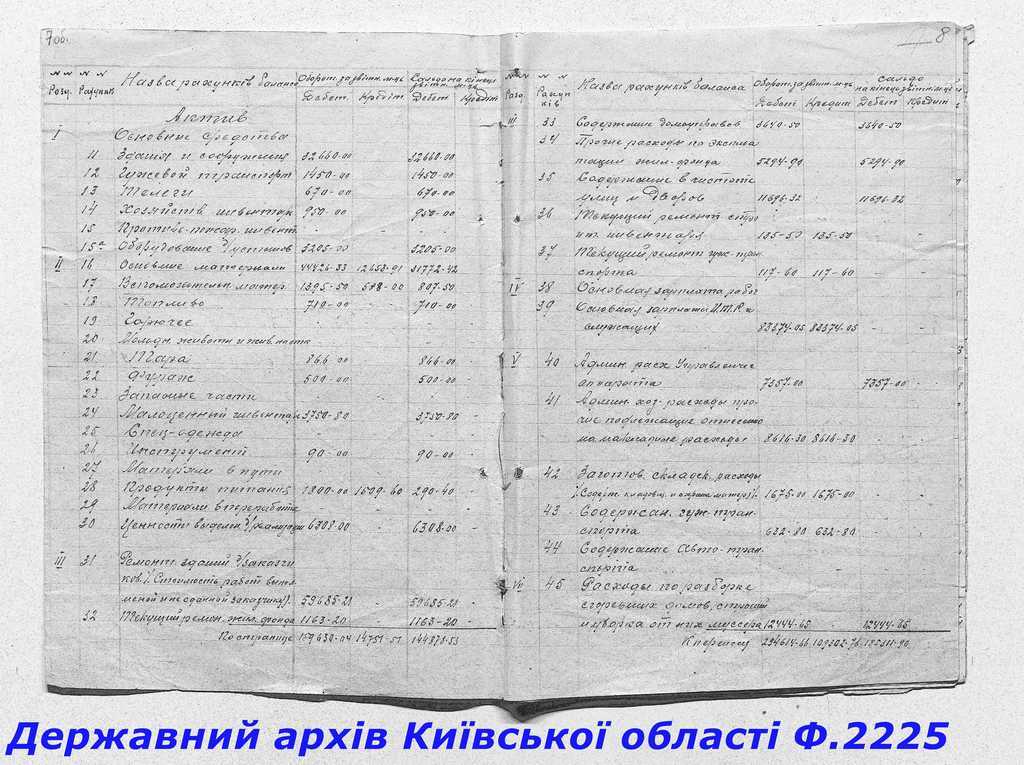 7 об.
№№ Розд. №№ Рахунків Назва рахунків балансу Оборот за звітн. м-ць Дебет. Кредіт Сальдо на кінець звітн. м-ця Дебет Кредіт
Актив
I Основные средства
11 Здания и сооружения 32660-00 32660-00
12 Гужевой транспорт 1450-00 1450-00
13 Телеги 670-00 670-00
14 Хозяйств. инвентарь 950-00 950-00
15 Противо-пожар. инвент. - - -
15а Оборудование 3205-00 3205-00
II 16 Основные материалы 44426-33 12653-91 31772-42
17 Вспомогательн. матер. 1395-50 588-00 807-50
18 Топливо 710-00 710-00
19 Горючее
20 Молодн. животн и жив.
21 Тара 866-00 866-00
22 Фураж 500-00 500-00
23 Запасные части
24 Малоценный инвентарь 3750-80 3750-80
25 Спец-одежда
26 Инструмент 90-00 90-00
27 Материалы в пути
28 Продукты питания 1800-00 1509-60 290-40
29 Материалы в переработке
30 Ценности выделен. 6308-00 6308-00
III 31 Ремонт зданий заказчи
ков (Стоимость работ выпол
неной и не сданной заказчику). 59685-21 59685-21
32 Текущий ремон. жил. фонда 1163-20 - 1163-20
По странице 159630-04 14751-51 144878-53
8
№№ Розд. №№ Рахунків Назва рахунків баланса Оборот за звітн. м-ць Дебет Кредит Сальдо на кінець звітн. м-ця Дебет Кредит
III 33 Содержание домоуправов 3640-50 3640-50
34 Прочие расходы по эксплоа
тации жил-фонда 5294-90 5294-90
35 Содержание в чистоте
улиц и дворов 11696-32 11696-32
36 Текущий ремонт стро
ит. инвентаря 135-50 135-50
37 Текущий ремонт гуж-тран
спорта 117-60 117-60
IV 38 Основная зарплата рабоч
39 Основная зарплата И.Т.Р. и
служащих 82374-05 82374-05
V 40 Админ. расх Управленчес
аппарата 7357-00 7357-00
41 Админ. хоз-расходы про-
чие подлежащие отнесению
на накладные расходы 8616-30 8616-30
42 Заготов. складск. расходы
(Содерж кладовщ. и охрана матер). 1675-00 1675-00
43 Содержан. гуж-тран-
спорта 632-80 632-80
44 Содержание Авто-тран-
спорта
VI 45 Расходы по разборке
сгоревших домов,
и уборка от них муссора 12444-65 12444-65
К переносу 294614-66
Державний архів Київської області Ф.2225